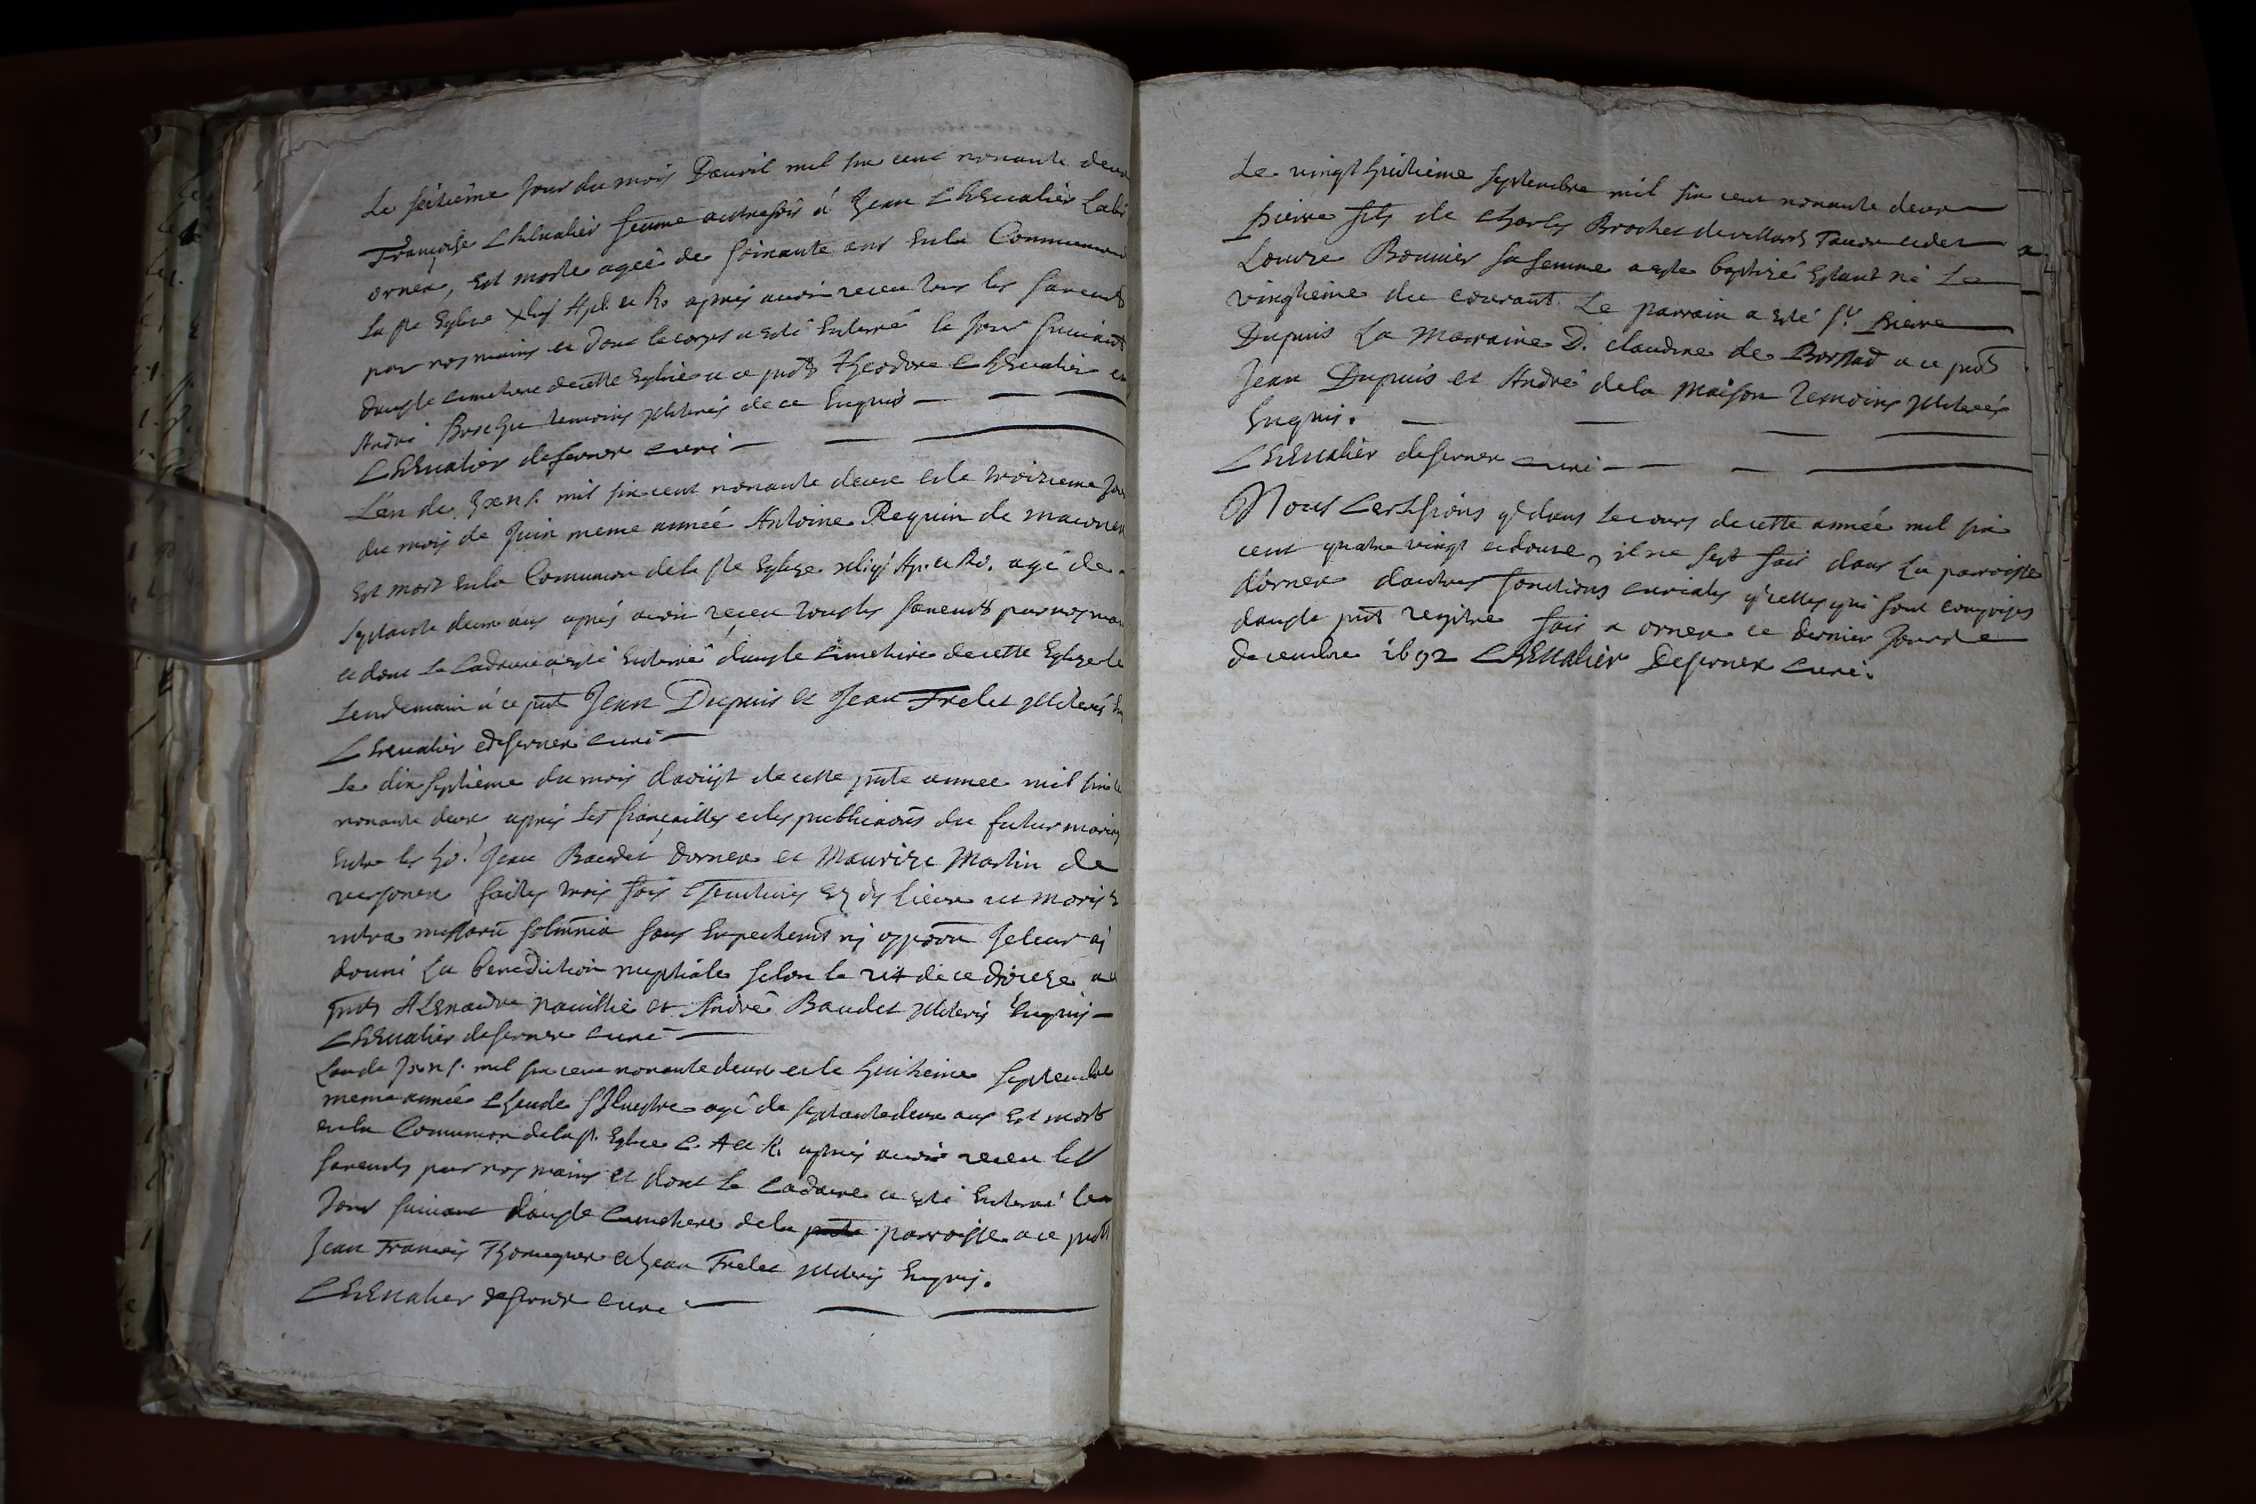 Le seitième Jour du mois Dauril mil six cent nonante deux
Françoise CHEualier femme autrefois à Jean CHEualier
ornex, Est morte agée de soixante ans En la Communion
la ste Eglise Apl. et Ro. après auoir receu tous les sacremts
par nos mains et dont le corps a esté Enterré le Jour suiuant
dans le cimetiere de cette Eglise a ce pnts Theodore CHEualier et
André Boschu temoins jlliterés de ce Enquis
CHEualier desornex curé
L'an de mil six cent nonante deux et le troizieme Jour
du mois de Juin meme année Antoine Requin de maconnex
Est mort En la Comunion de la ste Eglize Ap. et Ro. agé de
septante deux ans après auoir receu tous les sacremts par nos mains
et dont le Cadaure a esté Enterré dans le Cimetiere de cette Eglize le
Lendemain à ce pnts Jean Dupuis et Jean Frelet jlliterés
CHEualier desornex curé
Le dix septième du mois d'aoüst de cette pnte annee mil six
nonante deux après les fiançailles et les publicaõns du futur
Entre les Jean Baudet Dornex et Maurize Martin de
uersonex faites trois fois Es ds lieux
intra missarũ solemnia sans Enpechemt nj opp̃on Je leur aj
donné La benediction nuptiale selon le rit de ce dioceze
pnts ALExandre nauillie et André Baudet jlliterés Enquis
CHEualier desornex curé
Lan de mil six cent nonante deux et le huitieme septembre
meme année Claude Siluestre agé de septante deux ans Est mort
en la Comunion de la st. Eglize C. A et R. après auoir receu les
sacremts par nos mains et dont le Cadaure a esté Enterré le
Jour suiuant dans le Cimetiere de la pnte parroisse a ce pnts
Jean François et Jean Frelet jlliterés Enquis.
CHEualier desornex curé
Le vingt huitieme septembre mil six cent nonante deux
pierre fils de Charles Brochet de villard Tacon et de
Louize Bouuier sa femme a esté baptizé Estant né Le
vingtieme du courant. Le parrain a esté sr. Pierre
Dupuis La Marraine D. claudine de Borssad a ce pnts
Jean Dupuis et André dela Maison temoins jlliterés
Enquis.
CHEualier desornex curé
Nous Certifions q dans le cours de cette année mil six
cent quatre vingt et douze, il ne sest fait dans La parroisse
dornex dautres fonctions curiales q celles qui sont comprises
dans le pnt regitre fait a ornex ce dernier Jour de
decembre 1692 CHEualier Desornex Curé.